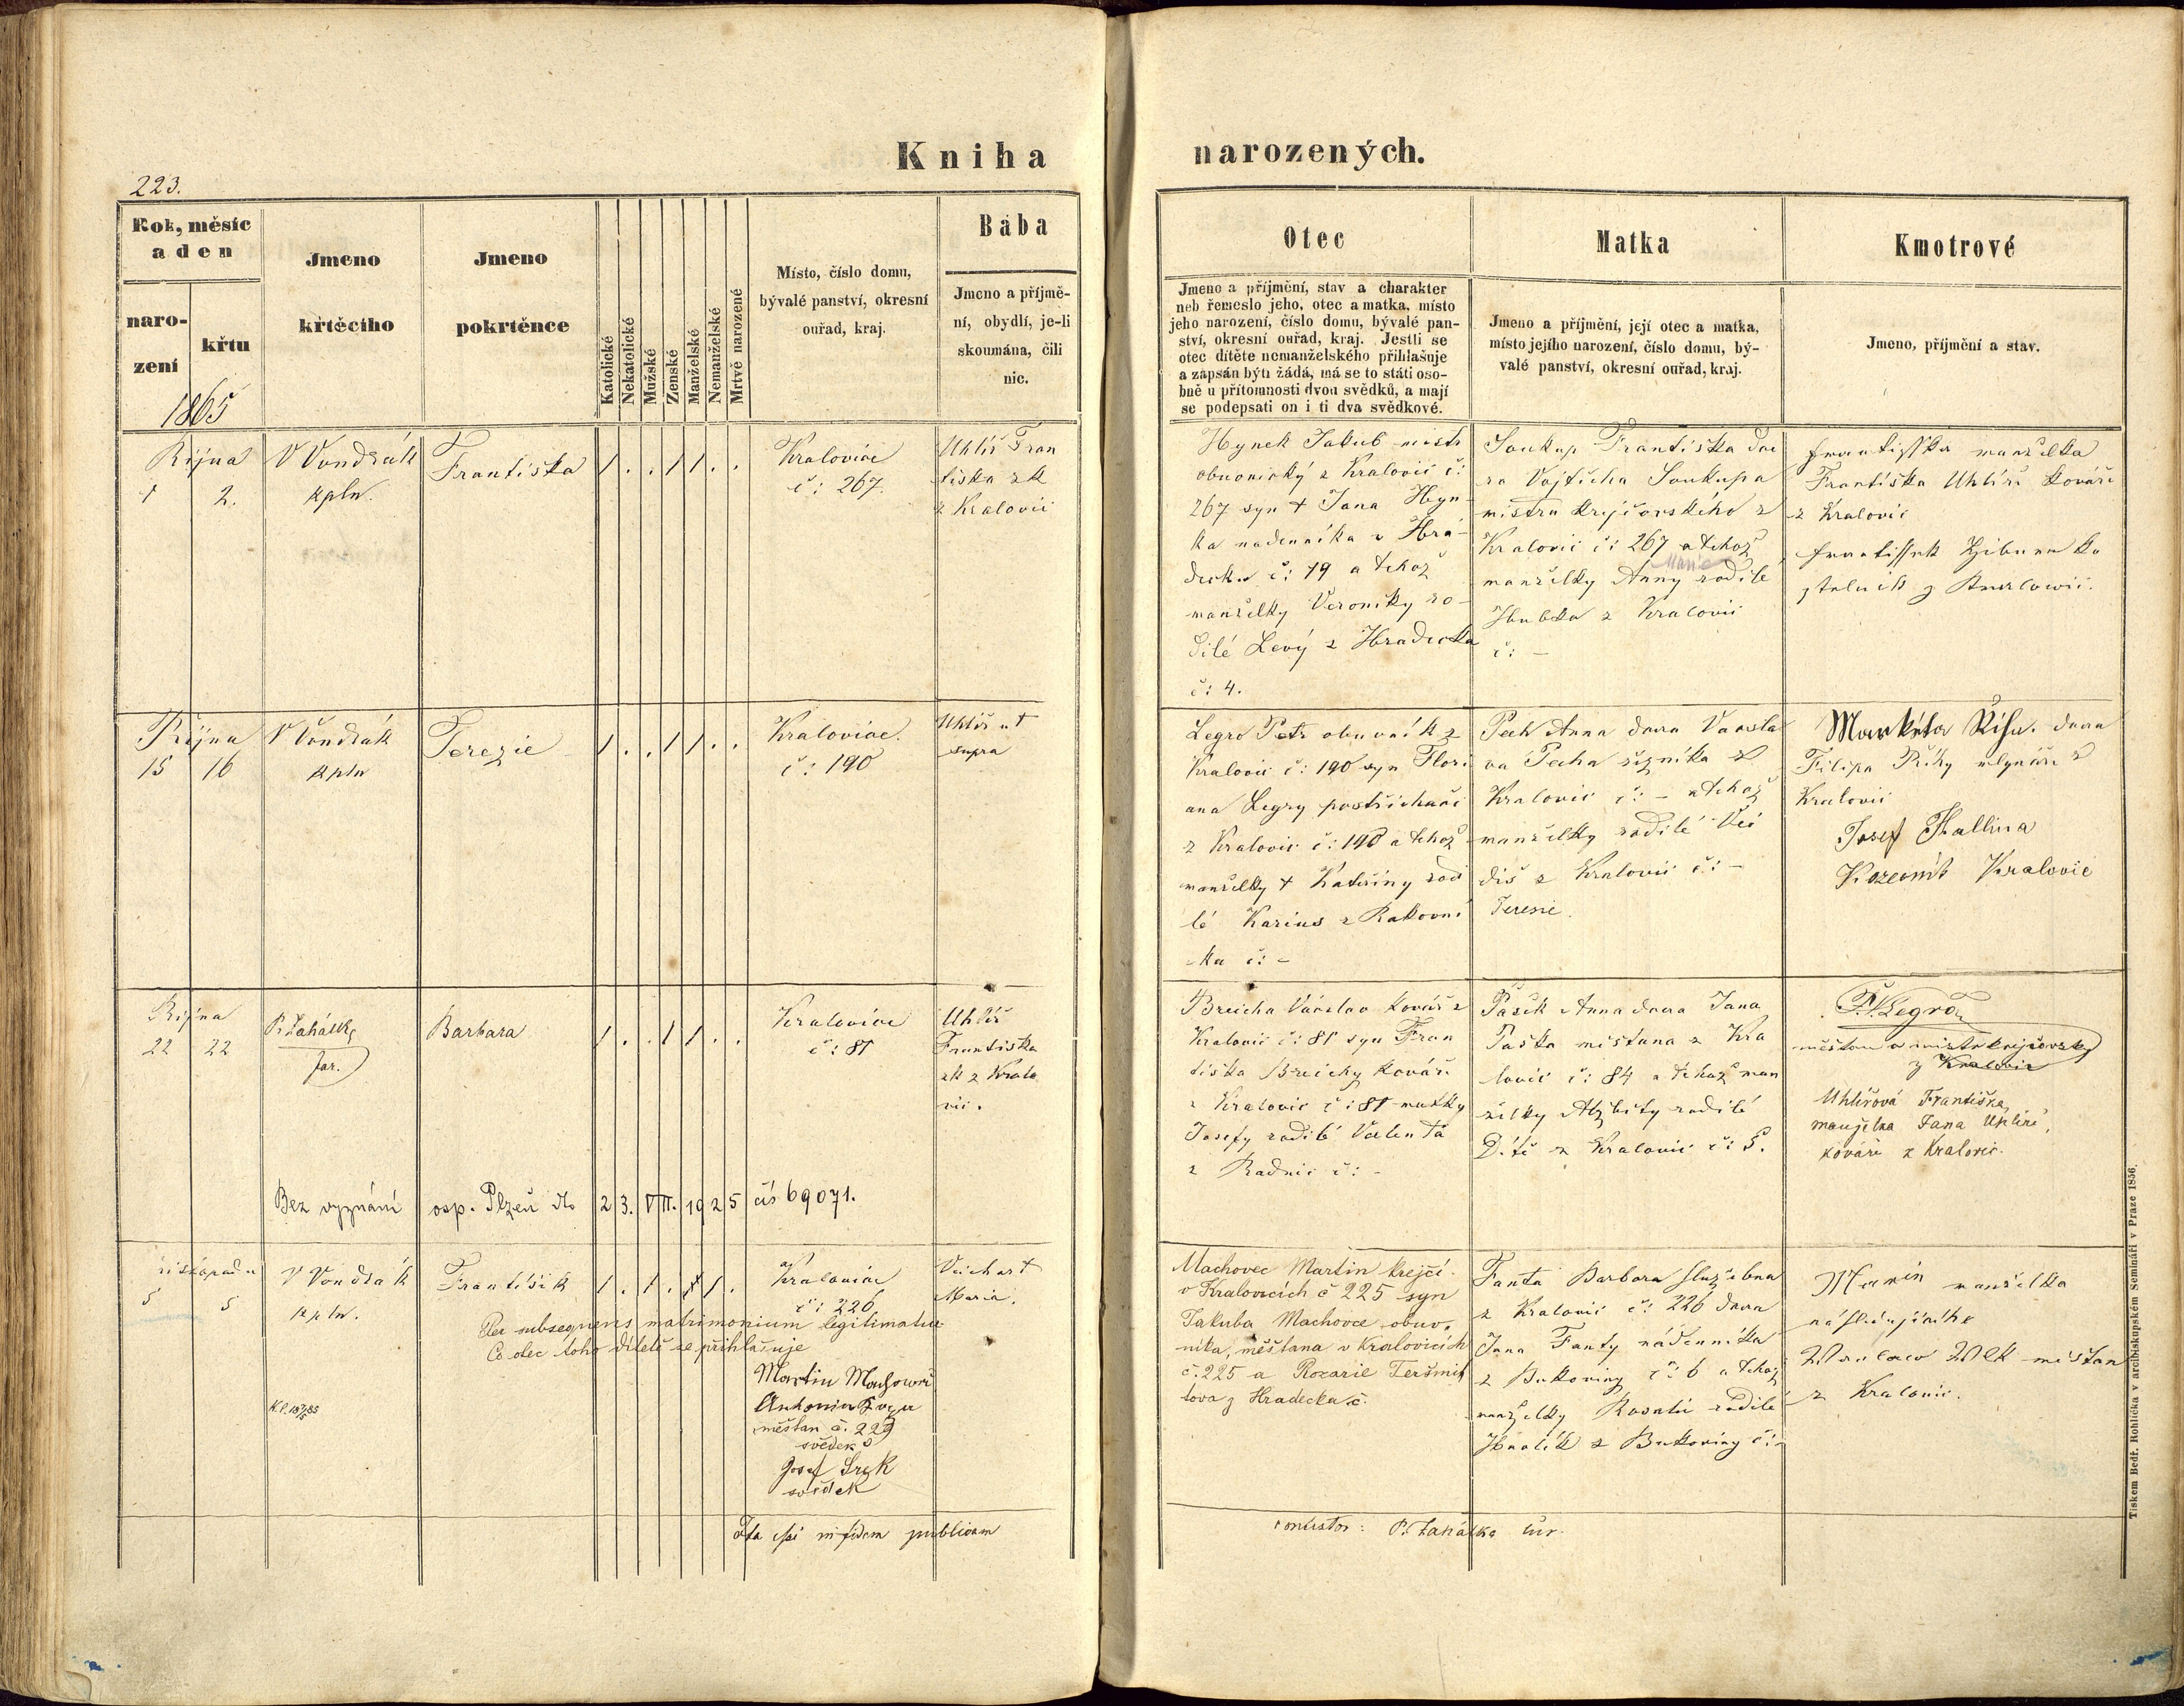 Kniha narozených.
223.
Rok, měsíc
a den
naro-
zení
křtu
1865
Jmeno
křtěcího
Jmeno
pokrtěnce
Katolické
Nekatolické
Mužské
Zenské
Manželské
Nemanželské
Mrtvě narozené
Místo, číslo domu,
bývalé panství, okresní
ouřad, kraj.
Bába
Jmeno a příjmě-
ní, obydlí, je-li
skoumána, čili
nic.
Otec
Jmeno a příjmění, stav a charakter
neb řemeslo jeho, otec a matka, místo
jeho narození, číslo domu, bývalé pan-
ství, okresní ouřad, kraj. Jestli se
otec dítěte nemanželského přihlašuje
a zapsán býti žádá, má se to státi oso-
bně u přítomnosti dvou svědků, a mají
se podepsati on i ti dva svědkové.
Matka
Jmeno a příjmění, její otec a matka,
místo jejího narození, číslo domu, bý-
valé panství, okresní ouřad, kraj.
Kmotrové
Jmeno, příjmění a stav.
Října
1 2.
V Vondrák
kpln.
Františka
Kralovice
č: 267.
Uhlíř Fran
tiska zk
z Kralovic
Hynek Jakub mistr
obuvnický z Kralovic č:
267 syn † Jana Hyn-
ka nadenníka v Hrá-
decku č: 19 a tehož
manželky Veroniky ro-
dilé Levý z Hradecka
č: 4.
Soukup Františka dce
ra Vojtěcha Soukupa
mistra krejčovského z
Kralovic č: 267 a tehož
Marie
manželky Anny rodilé
z Kralovic
č: –
Františka manželka
Františka Uhlíře kováře
z Kralovic
Října
15 16
V Vondrák
kpln
Terezie
Kralovice.
č: 190
Uhlíř ut
supra
Legro Petr obuvník z
Kralovic č: 190 syn Flori
ana Legry postřihače
z Kralovic č: 190 a tehož
manželky † Kateřiny rodi
lé Karius z Rakovní
-ka č: –
Pech Anna dcera Vácsla
va Pecha řezníka z
Kralovic č: – a tehož
manželky rodilé Vei
diš z Kralovic č: –
Teresie.
Markéta Říha. dcera
Filipa Říhy mlynáře z
Kralovic
Josef Kallina
Kralovic
Října
22 22
P. Zahálka
far.
Barbara
Kralovice
č: 81
Uhlíř
Františka
zk z Kralo
vic.
Breicha Václav kovář z
Kralovic č: 81 syn Fran
tiška Breichy kováře
z Kralovic č: 81 matky
Josefy rodilé Valenta
z Radnic č: –
Pašek Anna dcera Jana
Paška měštana z Kra
lovic č: 84 a tehož man
želky Alžběty rodilé
Dítě z Kralovic č: 5.
P. Legro
měštan a mistr krejčovský
z Kralovic
Uhlířová Františka,
manželka Jana Uhlíře,
kováře z Kralovic.
Bez vyznání osp. Plzeň dto 23. VII. 1925 čís 69071.
listopadu
5 5
V Vondrák
kpln.
František
Kralovice
č: 226
Veichart
Maria.
Per subsequens matrimonium legitimatus
Co otec toho dítěte se přihlašuje
Martin Machovec
Antonín
měštan č. 229
svědek
Josef Srek
svědek
Machovec Martin krejčí
v Kralovicích č 225 syn
Jakuba Machovce obuv-
níka, měštana v Kralovicích
č. 225 a Rozarie Teršmit
lova z Hradecka č.
Fanta Barbora služebna
z Kralovic č: 226 dcera
Jana Fanty nádenníka
z Bukoviny č: 6 a tehož
manželky Rosalie rodilé
z Bukoviny č: –
Marie manželka
následujícího
Václav Wlk měštan
z Kralovic.
Ita esse in fidem publicam
P. Zahálka
Tiskem Bedř. Rohlíčka v arcibiskupském Semináři v Praze 1856.